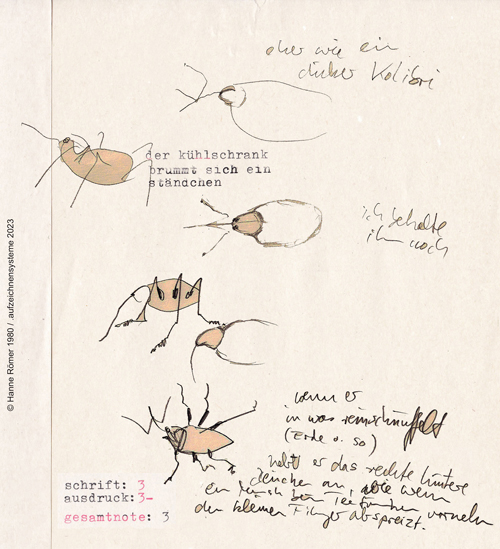 aber wie ein
dicker Kolibri
der kühlschrank
brummt sich ein
ständchen
ich behalte
ihn noch
wenn er
in was reinschnüffelt
(Erde o. so)
hebt er das rechte hintere
beinchen an, wie wenn
er sich beim Tee trinken vornehm
den kleinen Finger abspreizt.
schrift: 3
ausdruck: 3-
gesamtnote: 3
© Hanne Römer 1980 / .aufzeichnensysteme 2023